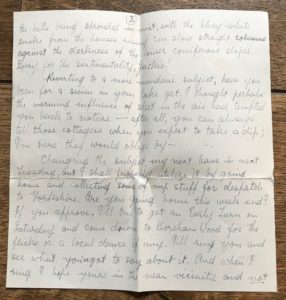 (3.
the hills being shrouded in mist, with the blueywhite
smoke from the houses rising in slow straight columns
against the darkness of the lower coniferous slopes.
Sorry for the sentimentality, Jackie!
Reverting to a more mundane subject, have you
been for a swim in your lake yet. I thought perhaps
the warming influence of in the air had tempted
you back to nature — after all, you can always
tell those cottagers when you expect to take a dip;
I'm sure they would oblige by! —
Changing the subject my next leave is next
Tuesday, but I shall by going
home and collecting some of my stuff for despatch
to Yorkshire. Are you going home this week end?
If you approve, I'll try to get an early turn on
Saturday and come down to Boreham Wood for the
flicks or a local dance if any. I'll ring you and
see what you've got to say about it. And when I
ring I hope you're in the near vicinity and not